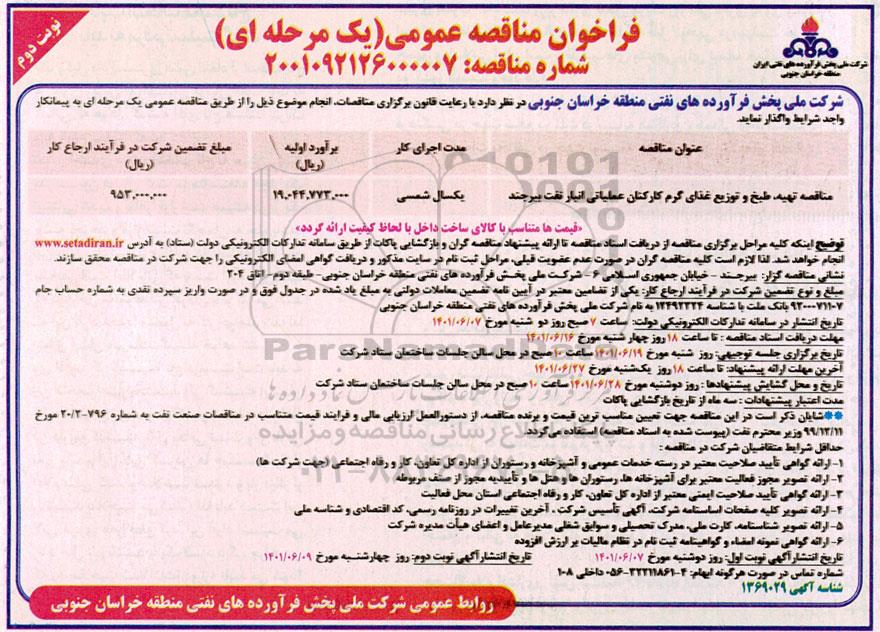 نوبت دوم
فراخوان مناقصه عمومی(یک مرحله ای)
شماره مناقصه: ۲۰۰۱۰۹۲۱۲۶۰۰۰۰۰۷
شرکت ملی پخش فرآورده های نفتی ایران
منطقه خراسان جنوبی
شرکت ملی پخش فرآورده های نفتی منطقه خراسان جنوبی در نظر دارد با رعایت قانون برگزاری مناقصات، انجام موضوع ذیل را از طریق مناقصه عمومی یک مرحله ای به پیمانکار
واجد شرایط واگذار نماید.
عنوان مناقصه مدت اجرای کار برآورد اولیه (ریال) مبلغ تضمین شرکت در فرآیند ارجاع کار (ریال)
مناقصه تهیه، طبخ و توزیع غذای گرم کارکنان عملیاتی انبار نفت بیرجند یکسال شمسی ۱۹.۰۴۴.۷۷۳.۰۰۰ ۹۵۳.۰۰۰.۰۰۰
«قیمت ها متناسب با کالای ساخت داخل با لحاظ کیفیت ارائه گردد»
توضیح اینکه کلیه مراحل برگزاری مناقصه از دریافت اسناد مناقصه تا ارائه پیشنهاد مناقصه گران و بازگشایی پاکات از طریق سامانه تدارکات الکترونیکی دولت (ستاد) به آدرس www.setadiran.ir
انجام خواهد شد. لذا لازم است کلیه مناقصه گران در صورت عدم عضویت قبلی، مراحل ثبت نام در سایت مذکور و دریافت گواهی امضای الکترونیکی را جهت شرکت در مناقصه محقق سازند.
نشانی مناقصه گزار: بیرجند - خیابان جمهوری اسلامی ۶ - شرکت ملی پخش فرآورده های نفتی منطقه خراسان جنوبی- طبقه دوم - اتاق ۲۰۴
مبلغ و نوع تضمین شرکت در فرآیند ارجاع کار: یکی از تضامین معتبر در آیین نامه تضمین معاملات دولتی به مبلغ یاد شده در جدول فوق و در صورت واریز سپرده نقدی به شماره حساب جام
بانک ملت با شناسه به نام شرکت ملی پخش فرآورده های نفتی منطقه خراسان جنوبی
تاریخ انتشار در سامانه تدارکات الکترونیکی دولت: ساعت ۷ صبح روز دو شنبه مورخ ۱۴۰۱/۰۶/۰۷
مهلت دریافت اسناد مناقصه : تا ساعت ۱۸ روز چهار شنبه مورخ ۱۴۰۱/۰۶/۱۶
تاریخ برگزاری جلسه توجیهی: روز شنبه مورخ ۱۴۰۱/۰۶/۱۹ ساعت ۱۰ صبح در محل سالن جلسات ساختمان ستاد شرکت
آخرین مهلت ارائه پیشنهاد: تا ساعت ۱۸ روز یکشنبه مورخ ۱۴۰۱/۰۶/۲۷
تاریخ و محل گشایش پیشنهادها : روز دوشنبه مورخ ۱۴۰۱/۰۶/۲۸ ساعت ۱۰ صبح در محل سالن جلسات ساختمان ستاد شرکت
مدت اعتبار پیشنهادات : سه ماه از تاریخ بازگشایی پاکات
**شایان ذکر است در این مناقصه جهت تعیین مناسب ترین قیمت و برنده مناقصه، از دستورالعمل ارزیابی مالی و فرایند قیمت متناسب در مناقصات صنعت نفت به شماره ۷۹۶-۲۰/۲ مورخ
۹۹/۱۲/۱۱ وزیر محترم نفت (پیوست شده به اسناد مناقصه) استفاده می گردد.
حداقل شرایط متقاضیان شرکت در مناقصه :
۱- ارائه گواهی تأیید صلاحیت معتبر در رسته خدمات عمومی و آشپزخانه و رستوران از اداره کل تعاون، کار و رفاه اجتماعی (جهت شرکت ها)
۲- ارائه تصویر مجوز فعالیت معتبر برای آشپزخانه ها، رستوران ها و هتل ها و تأییدیه مجوز از صنف مربوطه
۳- ارائه گواهی تأیید صلاحیت ایمنی معتبر از اداره کل تعاون، کار و رفاه اجتماعی استان محل فعالیت
۴- ارائه تصویر کلیه صفحات اساسنامه شرکت، آگهی تأسیس شرکت ، آخرین تغییرات در روزنامه رسمی، کد اقتصادی و شناسه ملی
۵- ارائه تصویر شناسنامه، کارت ملی، مدرک تحصیلی و سوابق شغلی مدیرعامل و اعضای هیأت مدیره شرکت
۶- ارائه گواهی نمونه امضاء و گواهینامه ثبت نام در نظام مالیات بر ارزش افزوده
تاریخ انتشار آگهی نوبت اول: روز دوشنبه مورخ ۱۴۰۱/۰۶/۰۷ تاریخ انتشار آگهی نوبت دوم: روز چهارشنبه مورخ ۱۴۰۱/۰۶/۰۹
شماره تماس در صورت هرگونه ابهام: ۴-۳۲۲۱۱۸۶۱-۰۵۶ داخلی ۱۰۸
شناسه آگهی ۱۳۶۹۰۲۹
روابط عمومی شرکت ملی پخش فرآورده های نفتی منطقه خراسان جنوبی
ParsNamadData
پایگاه اطلاع رسانی مناقصه و مزایده